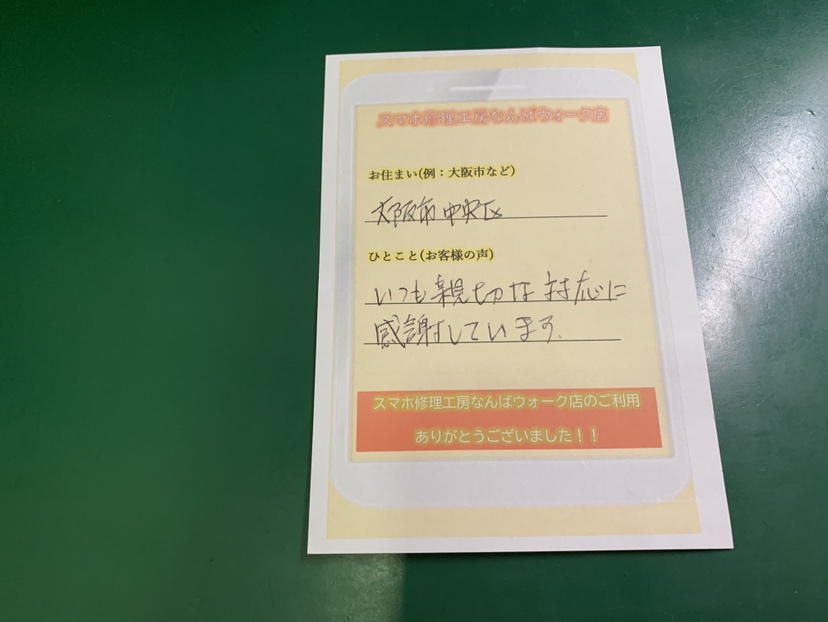 スマホ修理工房なんばウォーク店
お住まい(例：大阪市など)
大阪市中央区
ひとこと(お客様の声)
いつも親切な対応に
感謝しています.
スマホ修理工房なんばウォーク店のご利用
ありがとうございました！！